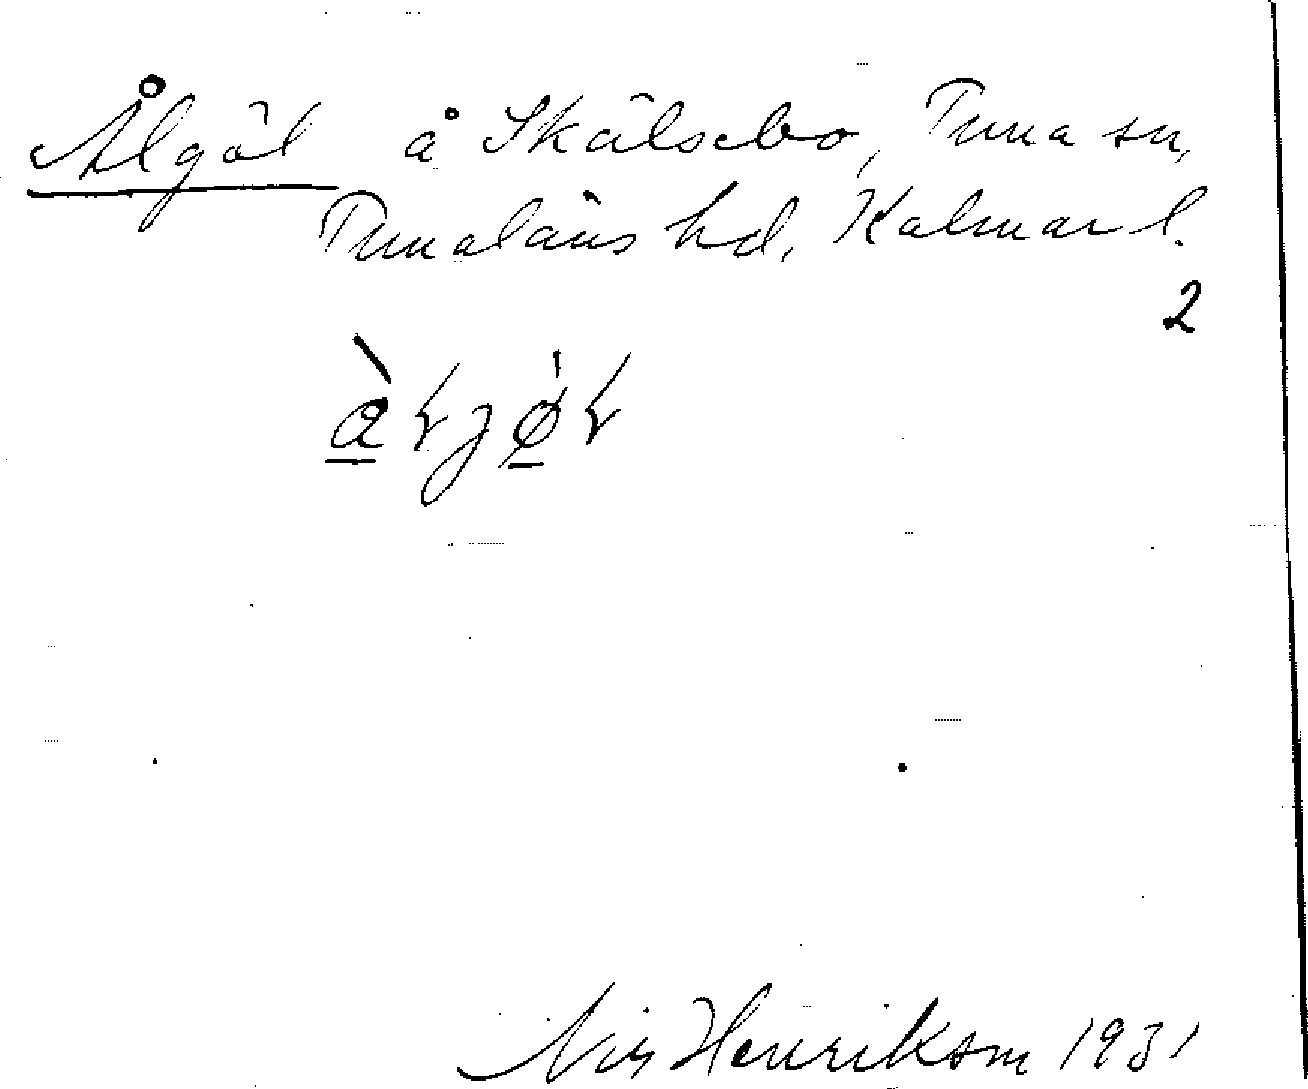 Ålgöl å Skälsebo, Tuna sn,
Tunaläns hd, Kalmar l.
2
Nils Henriksson 1931